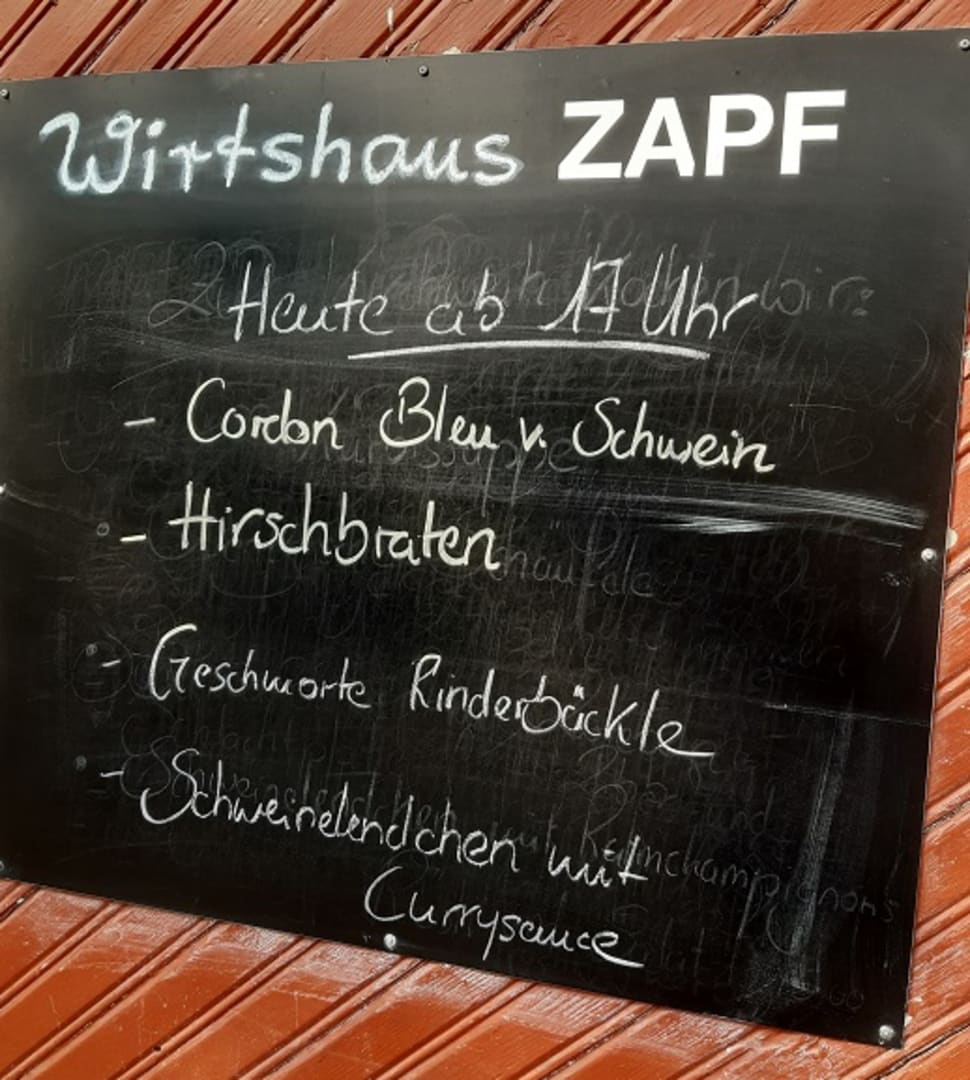 Wirtshaus ZAPF
Heute ab 17 Uhr
- Cordon Bleu v. Schwein
- Hirschbraten
- Geschmorte Rinderbäckle
- Schweinelendchen mit
Currysauce